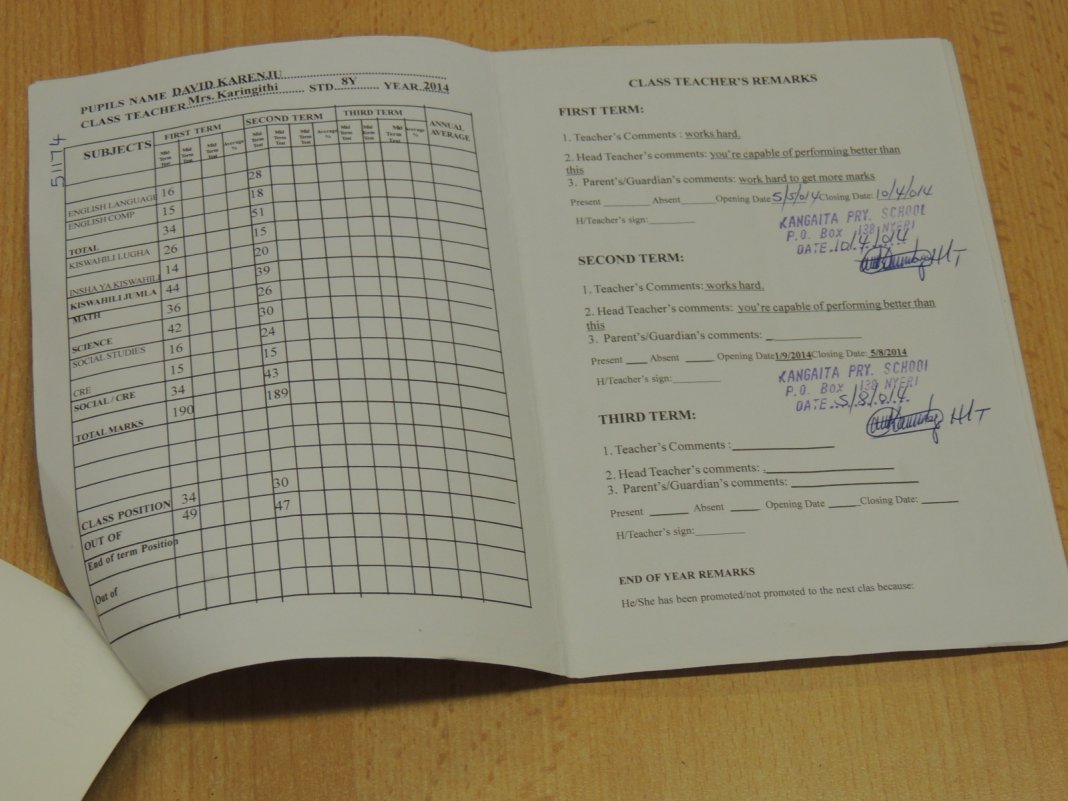 51174
PUPILS NAME DAVID KARENJU
CLASS TEACHER Mrs. Karingithi STD. 8Y YEAR 2014
SUBJECTS FIRST TERM SECOND TERM THIRD TERM ANNUAL AVERAGE
Mid Term Test Mid Term Test Mid Term Test Average % Mid Term Test Mid Term Test Mid Term Test Average % Mid Term Test Mid Term Test Mid Term Test Average %
ENGLISH LANGUAGE 16 28
ENGLISH COMP 15 18
TOTAL 34 51
KISWAHILI LUGHA 26 15
INSHA YA KISWAHILI 14 20
KISWAHILI JUMLA 44 39
MATH 36 26
SCIENCE 42 30
SOCIAL STUDIES 16 24
CRE 15 15
SOCIAL / CRE 34 43
TOTAL MARKS 190 189
CLASS POSITION 34 30
OUT OF 49 47
End of term Position
Out of
CLASS TEACHER'S REMARKS
FIRST TERM:
1. Teacher's Comments : works hard.
2. Head Teacher's comments: you're capable of performing better than
this
3. Parent's/Guardian's comments: work hard to get more marks
Present Absent Opening Date 5/5/014 Closing Date: 10/4/014
H/Teacher's sign:
KANGAITA PRY. SCHOOL
P.O. Box 138 NYERI
DATE 10/4/014
H/T
SECOND TERM:
1. Teacher's Comments: works hard.
2. Head Teacher's comments: you're capable of performing better than
this
3. Parent's/Guardian's comments:
Present Absent Opening Date1/9/2014Closing Date: 5/8/2014
H/Teacher's sign:
KANGAITA PRY. SCHOOL
P.O. Box 138 NYERI
DATE 5/8/014
H/T
THIRD TERM:
1. Teacher's Comments :
2. Head Teacher's comments: .
3. Parent's/Guardian's comments:
Present Absent Opening Date Closing Date:
H/Teacher's sign:
END OF YEAR REMARKS
He/She has been promoted/not promoted to the next clas because: